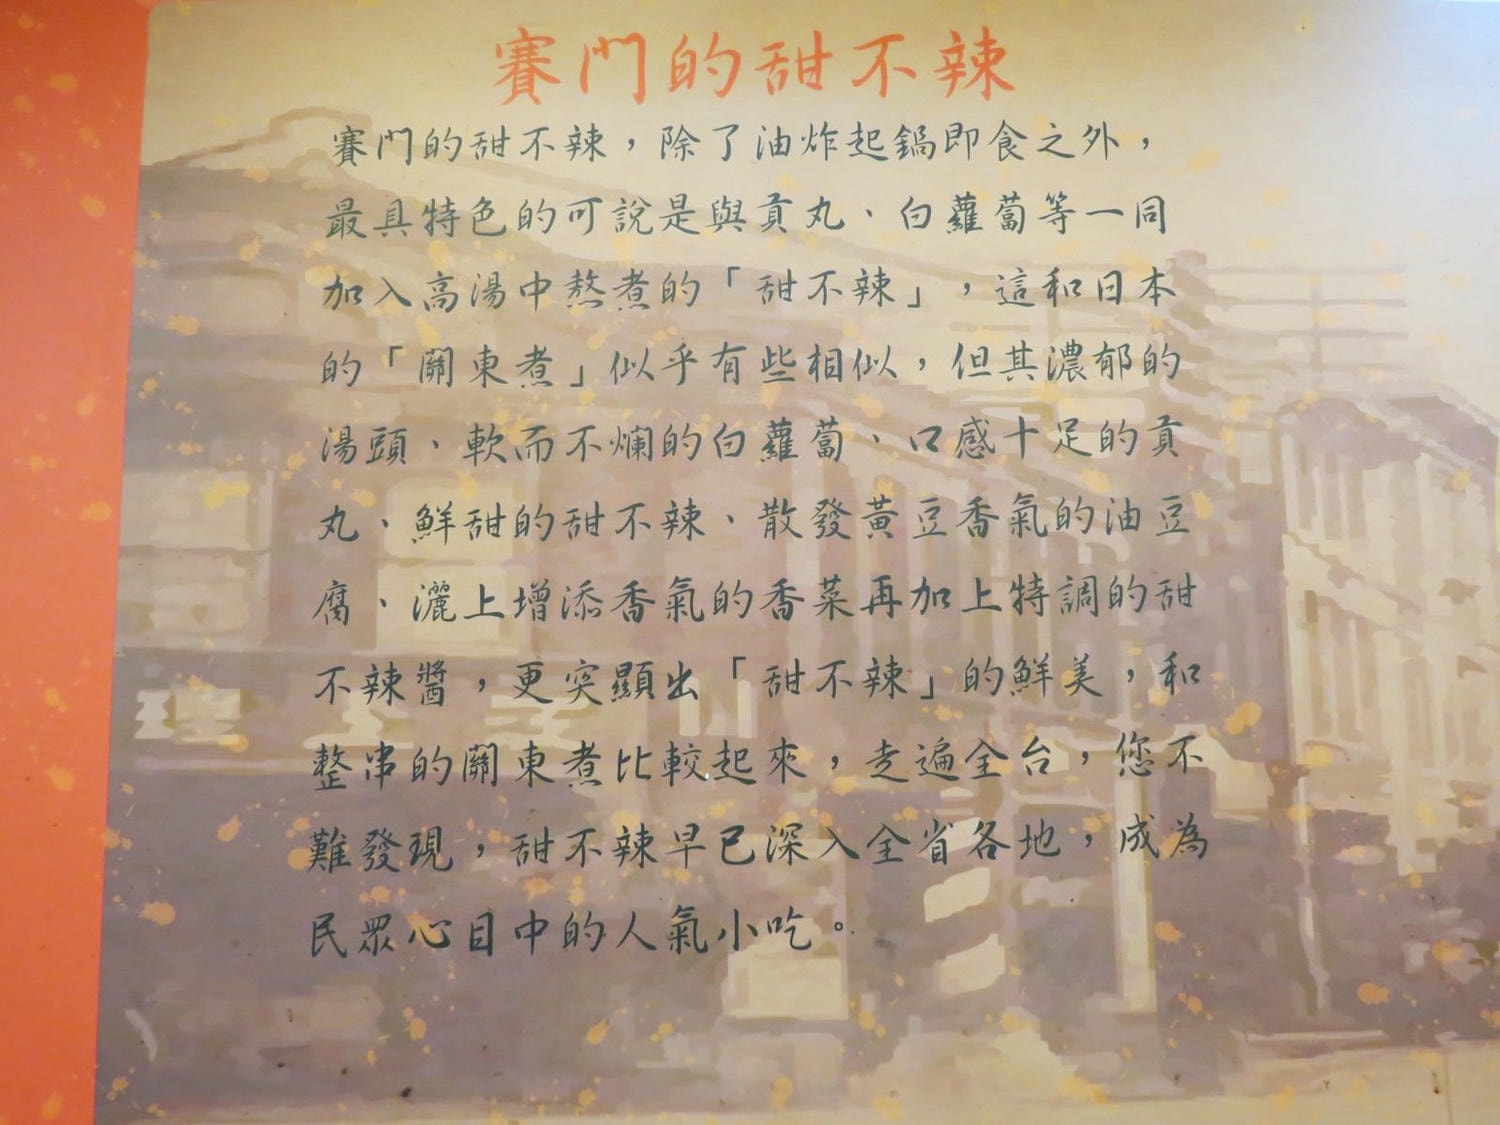 賽門的甜不辣
賽門的甜不辣，除了油炸起鍋即食之外，
最具特色的可說是與貢丸、白蘿蔔等一同
加入高湯中熬煮的「甜不辣」，這和日本
的「關東煮」似乎有些相似，但其濃郁的
湯頭、軟而不爛的白蘿蔔、口感十足的貢
丸、鮮甜的甜不辣、散發黃豆香氣的油豆
腐、灑上增添香氣的香菜再加上特調的甜
不辣醬，更突顯出「甜不辣」的鮮美，和
整串的關東煮比較起來，走遍全台，您不
難發現，甜不辣早已深入全省各地，成為
民眾心目中的人氣小吃。